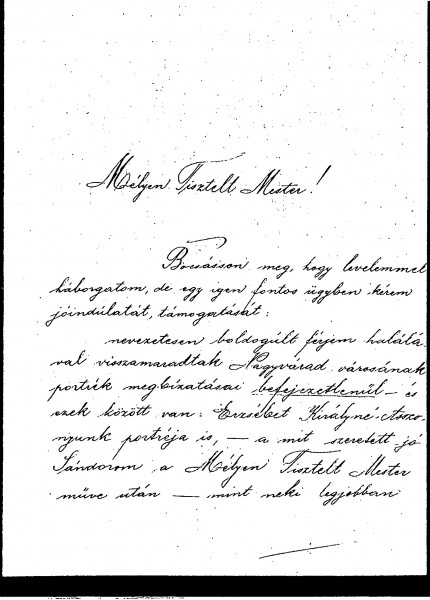 Mélyen Tisztelt Mester!
Bocsásson meg, hogy levelemmel
háborgatom, de egy igen fontos ügyben kérem
jóindúlatát, támogatását:
nevezetesen boldogúlt férjem halálá-
val visszamaradtak Nagyvárad városának
portrék megbízatásai befejezetlenűl – és
ezek között van: Erzsébet Királyné-Asszo-
nyunk portréja is, – a mit szeretett jó
Sándorom a Mélyen Tisztelt Mester
műve után – mint neki legjobban